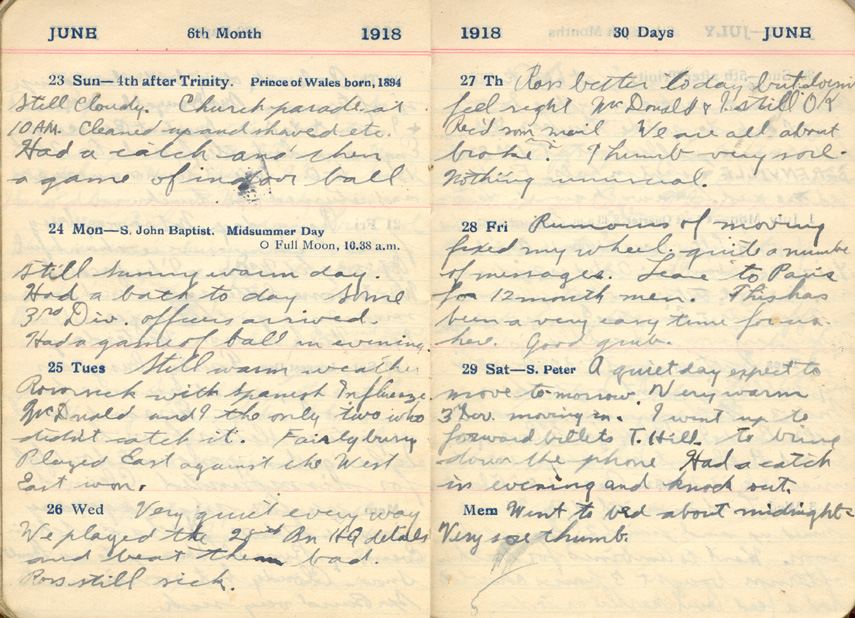 JUNE 6th Month 1918
23 Sun—4th after Trinity. Prince of Wales born, 1894
Still cloudy. Church parade at
10 AM. Cleaned up and shaved etc.
Had a catch and then
a game of indoor ball
24 Mon—S. John Baptist. Midsummer Day
○ Full Moon, 10.38 a.m.
Still sunny warm day.
Had a bath to day Some
3rd Div. officers arrived.
Had a game of ball in evening.
25 Tues Still warm weather
Ross sick with Spanish Influenza.
McDonald and I the only two who
didn't catch it. Fairly busy
Played East against the West
East won.
26 Wed Very quiet every way
We played the 28th Bn HQ details
and beat them bad.
Ross still sick.
1918 30 Days JUNE
27 Th Ross better today but doesn't
feel right McDonald & I still OK
Rec'd some mail We are all about
broke. Thumb very sore.
Nothing unusual.
28 Fri Rumours of moving
fixed my wheel. quite a number
of messages. Leave to Paris
for 12 month men. This has
been a very easy time for us
here. Good grub.
29 Sat—S. Peter A quiet day expect to
move tomorrow. Very warm
3rd Div. moving in. I went up to
forward billets T. Hill to bring
down the phone Had a catch
in evening and knock out.
Mem Went to bed about midnight
Very sore thumb.